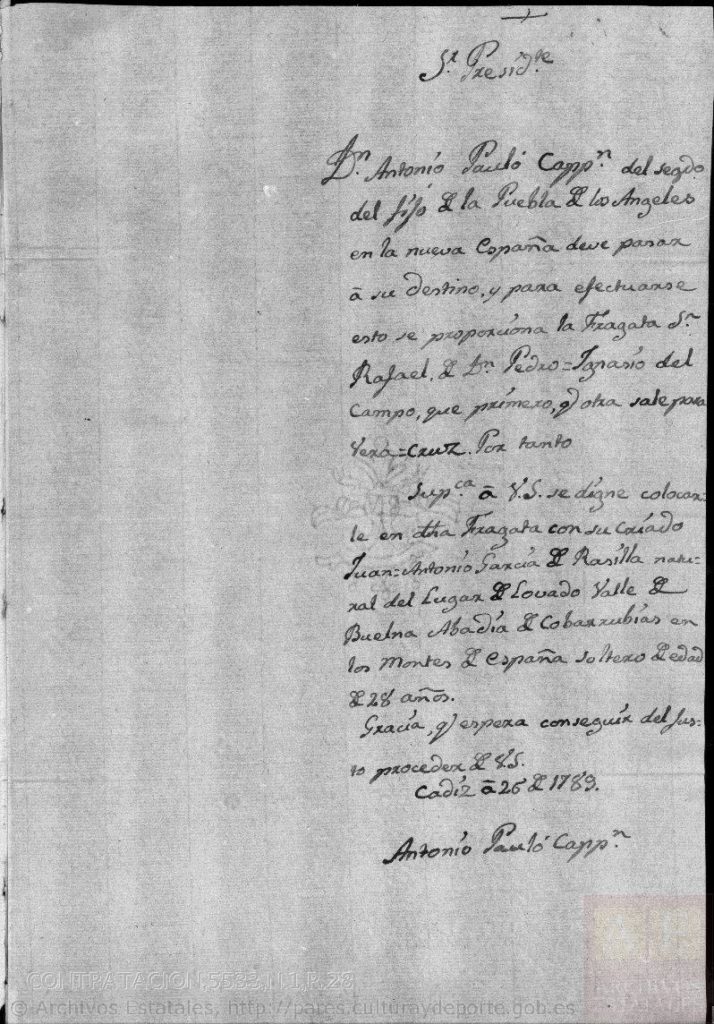 Sr. Presidte
Dn. Antonio Pauló Cappn. del segdo.
del fijo de la Puebla de los Angeles
en la nueva España deve pasar
â su destino, y para efectuarse
esto se proporciona la Fragata Sn.
Rafael, de Dn. Pedro=Ignasio del
Campo, que primero, q otra sale para
Vera=Cruz. Por tanto
Supca. â V.S. se digne colocar=
le en dha Fragata con su criado
Juan=Antonio Garcia de Rasilla natu=
ral del Lugar de Lovado Valle de
Buelna Abadia de Cobarrubias en
los Montes de España soltero de edad
de 28 años.
Gracia, q espera conseguir del jus=
to proceder de VS.
Cadiz â 26 de 1789.
Antonio Pauló Cappn.
CONTRATACION,5533,N.1,R.28
© Archivos Estatales, http://pares.culturaydeporte.gob.es